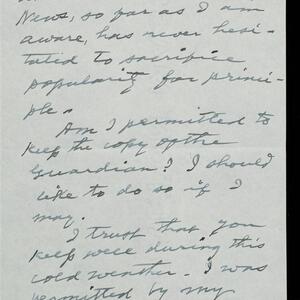 News, so far as I am
aware, has never hesi-
tated to sacrifice
popularity for princi-
ple.
Am I permitted to
keep the copy of the
Guardian? I should
like to do so if I
may.
I trust that you
keep well during this
cold weather. I was
permitted by my